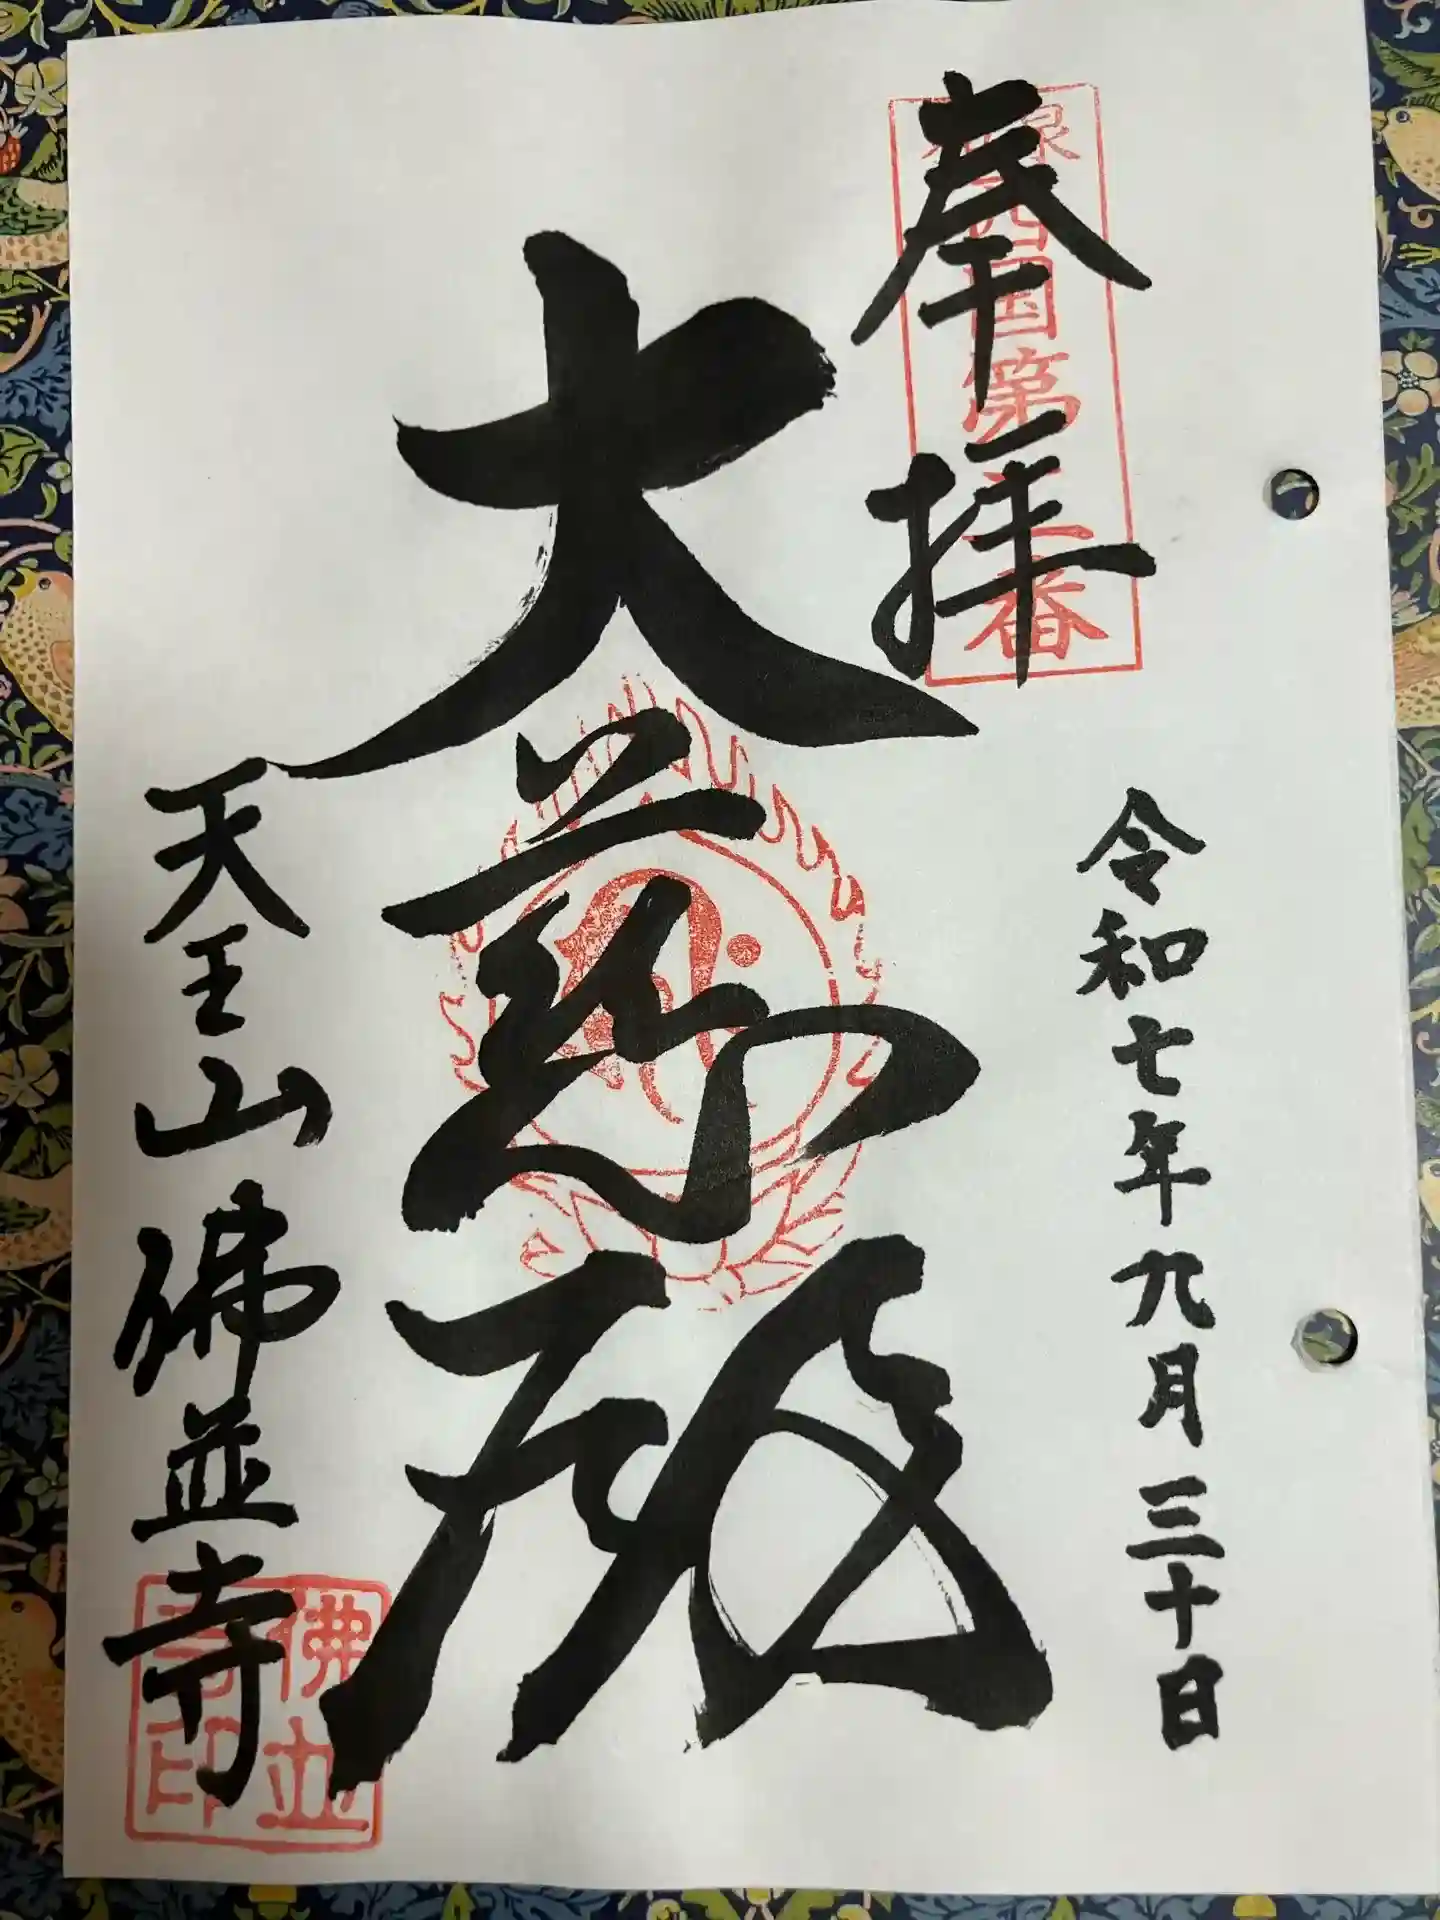 奉拝
泉西国第 番
令和七年九月三十日
大慈殿
天王山佛並寺
佛並寺印